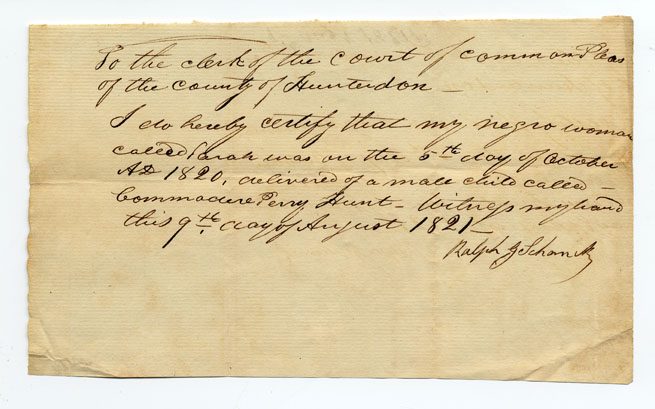 To the clerk of the court of common Pleas
of the county of Hunterdon —
I do hereby certify that my negro woman
called Sarah was on the 5th day of October
AD 1820, delivered of a male child called —
Commodore Perry Hunt — Witness my hand
this 9th day of August 1821 —
Ralph J Schanck